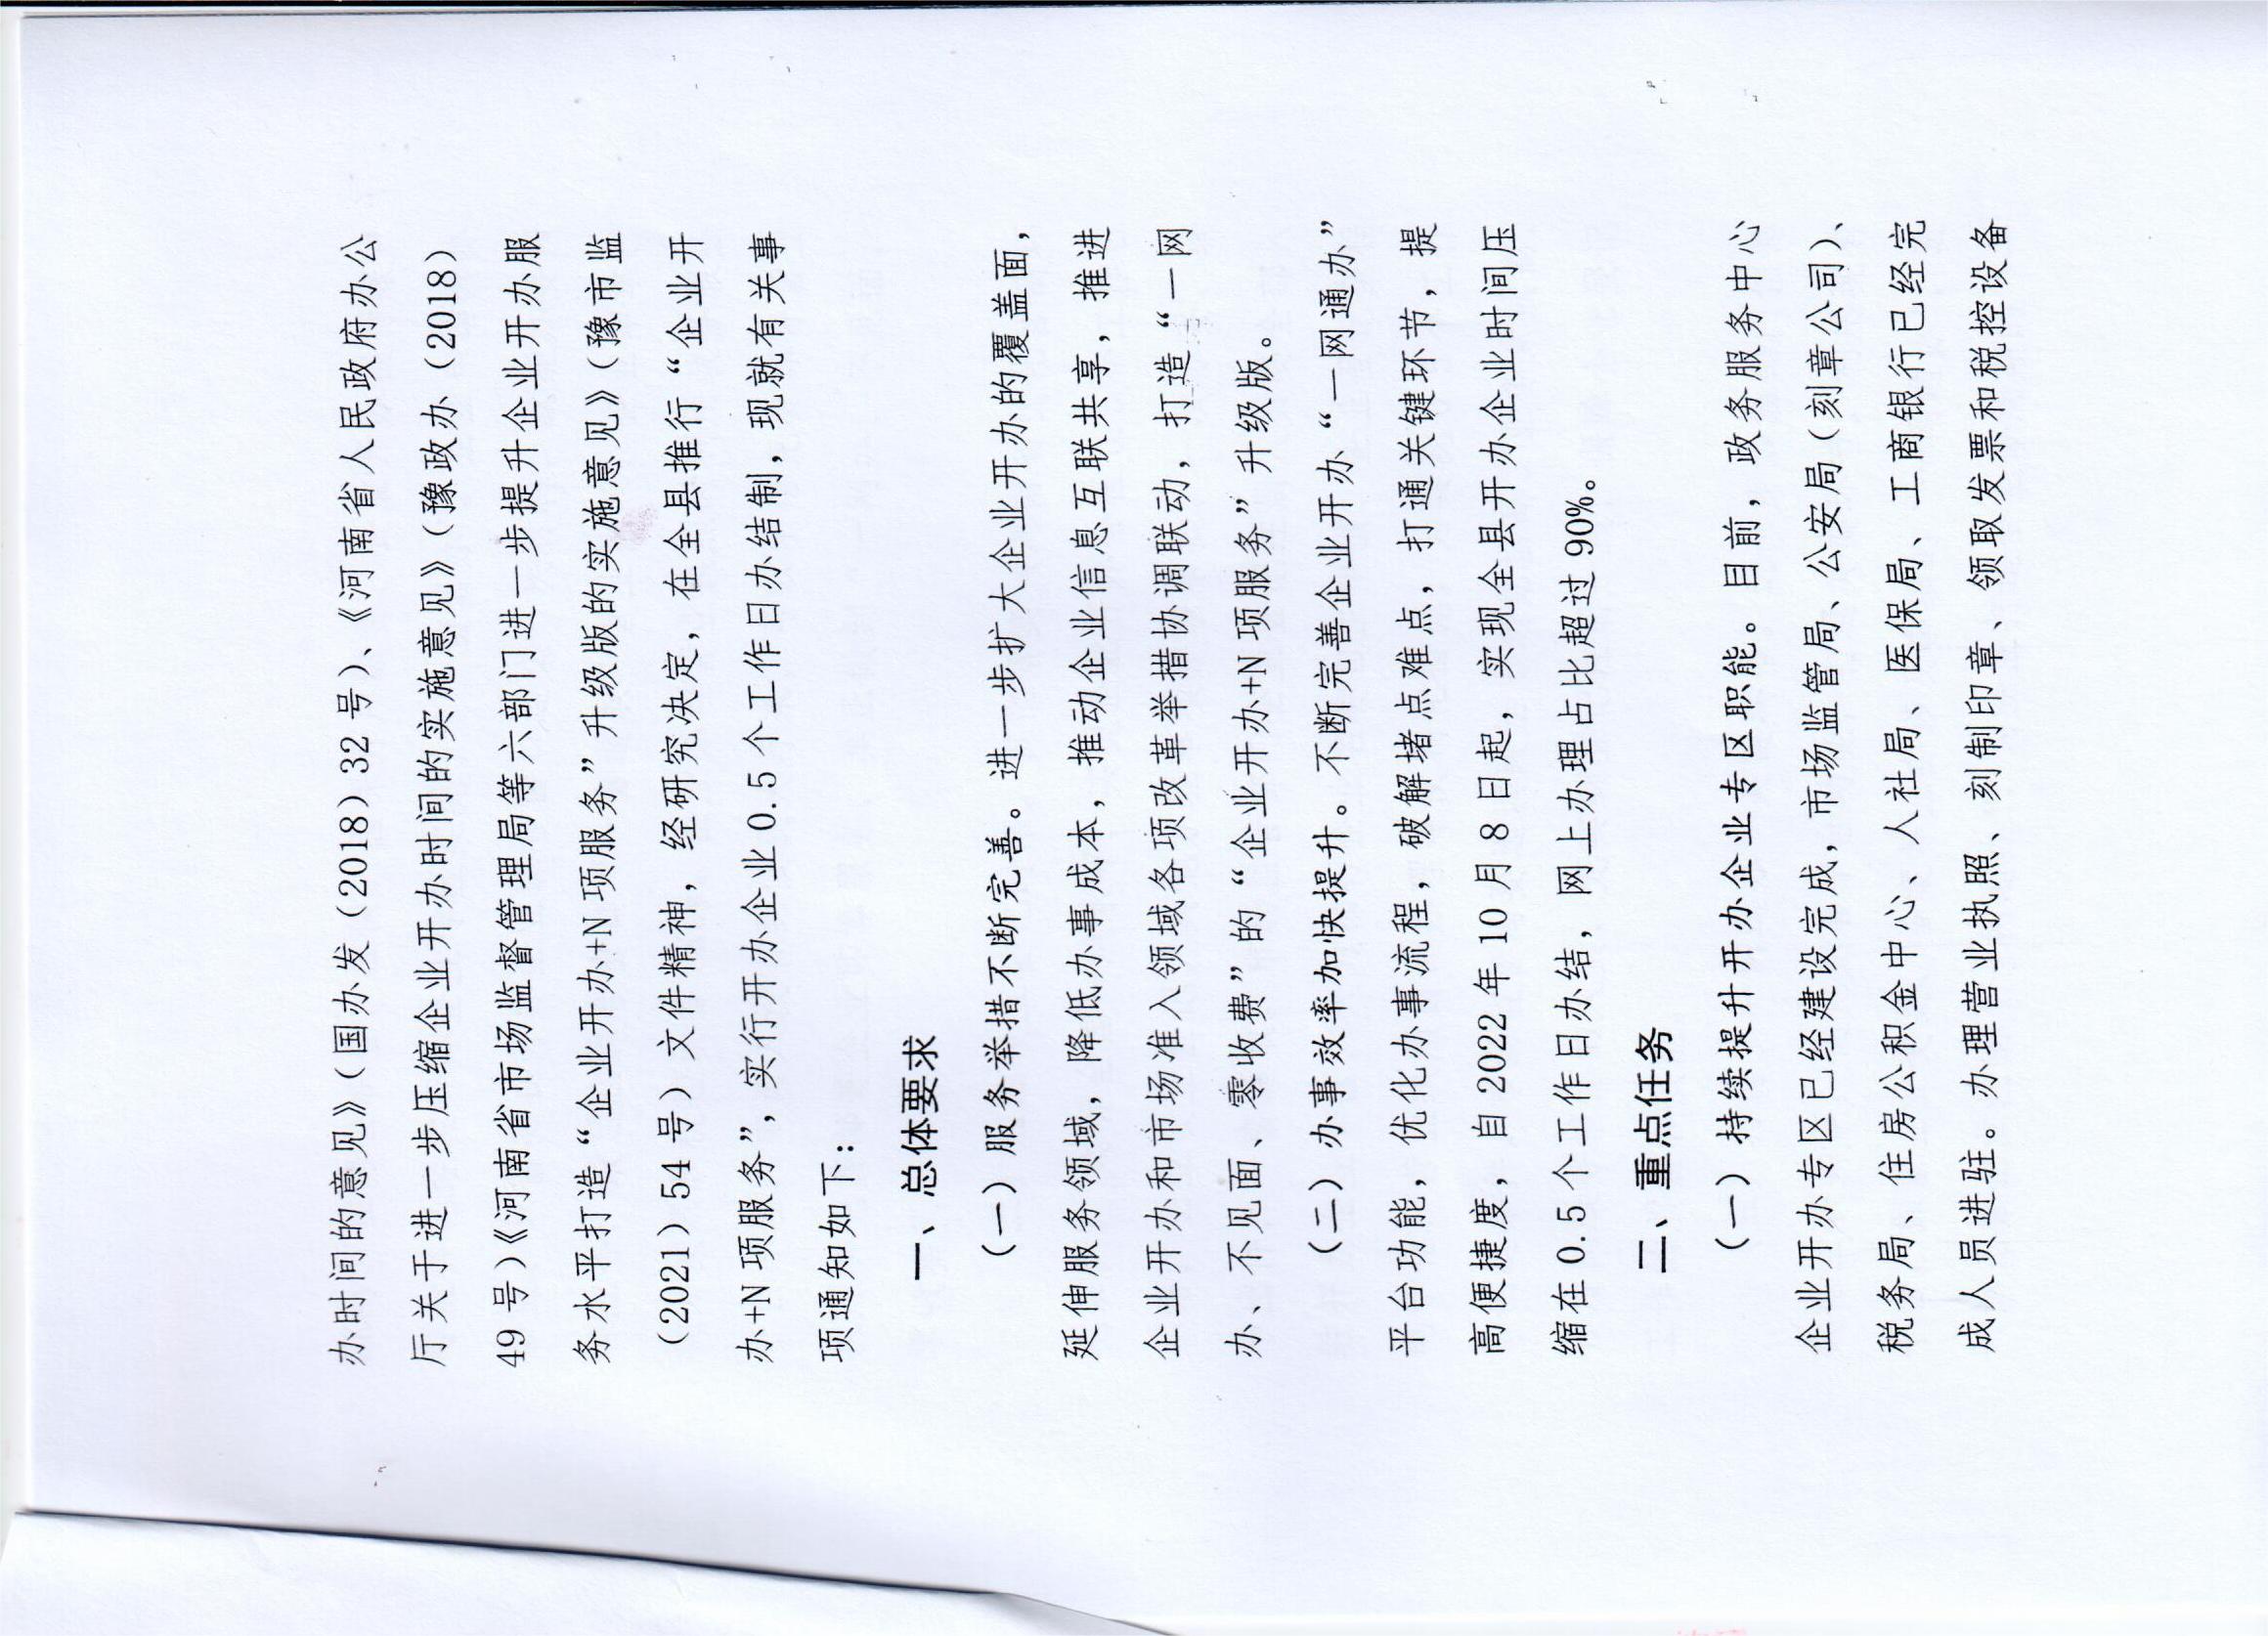 办时间的意见》（国办发（2018）32 号）、《河南省人民政府办公
厅关于进一步压缩企业开办时间的实施意见》（豫政办（2018）
49 号）《河南省市场监督管理局等六部门进一步提升企业开办服
务水平打造“企业开办+N 项服务”升级版的实施意见》（豫市监
（2021）54 号）文件精神，经研究决定，在全县推行“企业开
办+N 项服务”，实行开办企业 0.5 个工作日办结制，现就有关事
项通知如下：
一、总体要求
（一）服务举措不断完善。进一步扩大企业开办的覆盖面，
延伸服务领域，降低办事成本，推动企业信息互联共享，推进
企业开办和市场准入领域各项改革举措协调联动，打造“一网
办、不见面、零收费”的“企业开办+N 项服务”升级版。
（二）办事效率加快提升。不断完善企业开办“一网通办”
平台功能，优化办事流程，破解堵点难点，打通关键环节，提
高便捷度，自 2022 年 10 月 8 日起，实现全县开办企业时间压
缩在 0.5 个工作日办结，网上办理占比超过 90%。
二、重点任务
（一）持续提升开办企业专区职能。目前，政务服务中心
企业开办专区已经建设完成，市场监管局、公安局（刻章公司）、
税务局、住房公积金中心、人社局、医保局、工商银行已经完
成人员进驻。办理营业执照、刻制印章、领取发票和税控设备